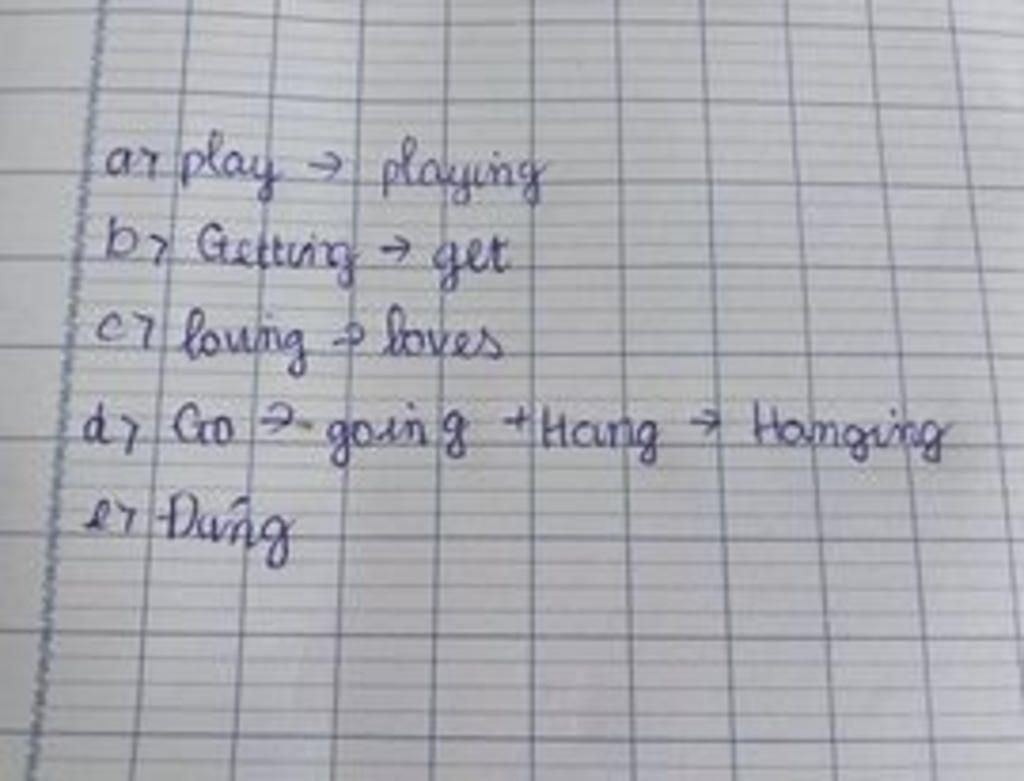 a> play → playing
b> Getting → get
c> loving → loves
d> Go → going + Hang → Hanging
e> Đúng